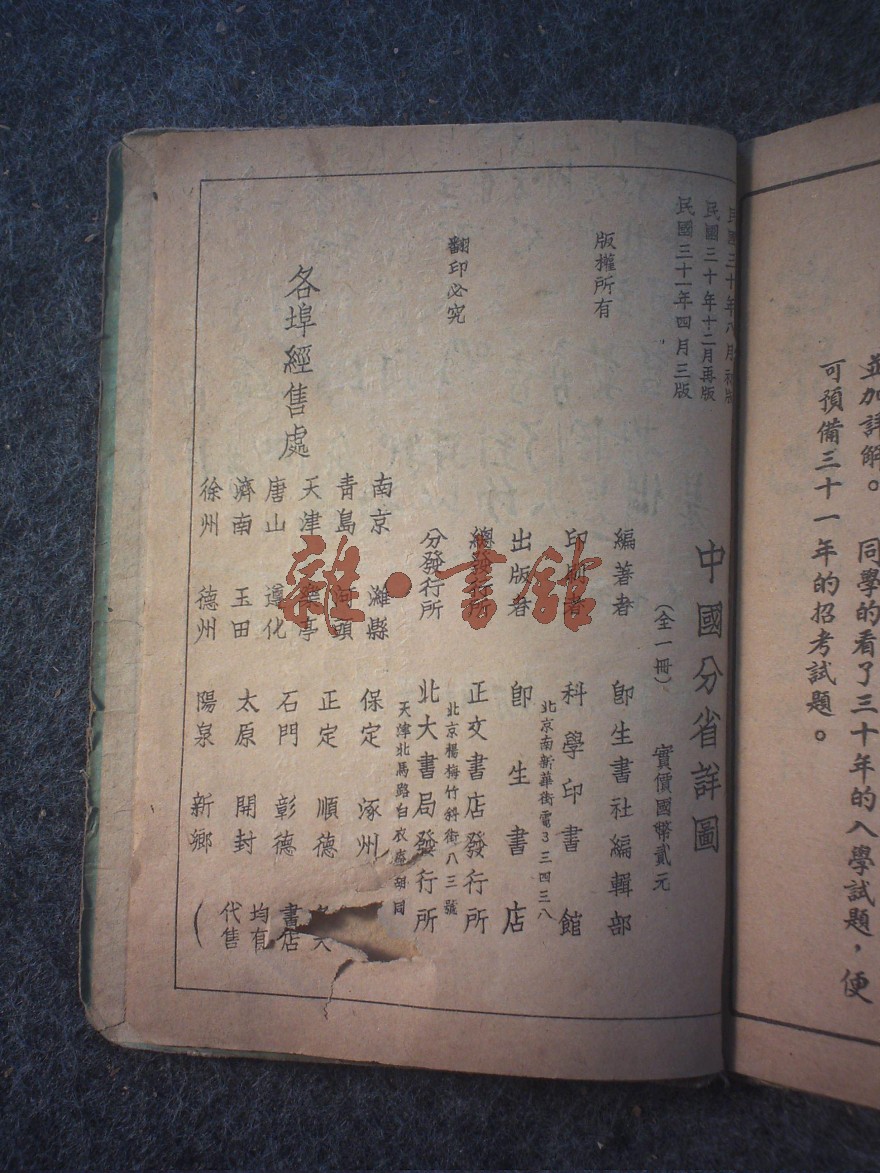 並加詳解。　同學的看了三十年的入學試題，便
可預備三十一年的招考試題。
民國三十年八月初版
民國三十年十二月再版
民國三十一年四月三版
中國分省詳圖
(全一冊)　實價國幣貳元
版權所有
翻印必究
編著者　卽生書社編輯部
印刷者　科學印書館
北京南新華街電3三四三八
出版者　卽生書店
總發行所　正文書店發行所
北京楊梅竹斜街八三號
分發行所　北大書局發行所
天津北馬路白衣庵胡同
各埠經售處
南京　濰縣　保定　涿州
青島　河頭　正定　順德
天津　樂亭　石門　彰德
唐山　遵化　太原　開封
濟南　玉田　陽泉　新鄉
徐州　德州
書店
均有
代售
雜·書館